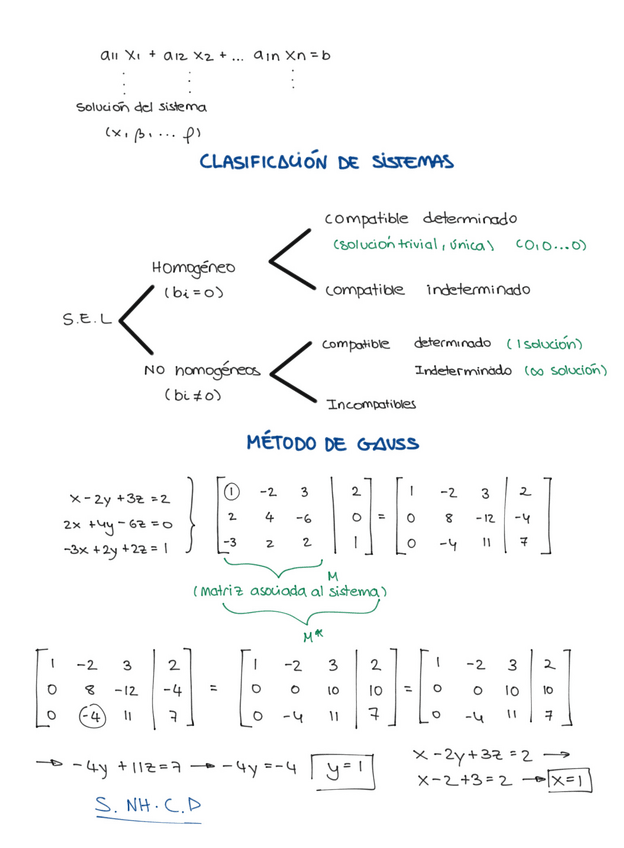 a11 x1 + a12 x2 + ... a1n xn = b
⋮ ⋮ ⋮
Solución del sistema
(x, β, ... ρ)
CLASIFICACIÓN DE SISTEMAS
S.E.L
Homogéneo
(bi = 0)
compatible determinado
(solución trivial, única) (0,0...0)
compatible indeterminado
NO homogéneos
(bi ≠ 0)
compatible determinado (1 solución)
Indeterminado (∞ solución)
Incompatibles
MÉTODO DE GAUSS
x - 2y + 3z = 2
2x + 4y - 6z = 0
-3x + 2y + 2z = 1
1 -2 3 | 2 = 1 -2 3 | 2
2 4 -6 | 0 = 0 8 -12 | -4
-3 2 2 | 1 0 -4 11 | 7
M
(matriz asociada al sistema)
M*
1 -2 3 | 2 1 -2 3 | 2 1 -2 3 | 2
0 8 -12 | -4 = 0 0 10 | 10 = 0 0 10 | 10
0 -4 11 | 7 0 -4 11 | 7 0 -4 11 | 7
→ -4y + 11z = 7 → -4y = -4 y = 1
x - 2y + 3z = 2 →
x - 2 + 3 = 2 → x = 1
S. NH. C. D